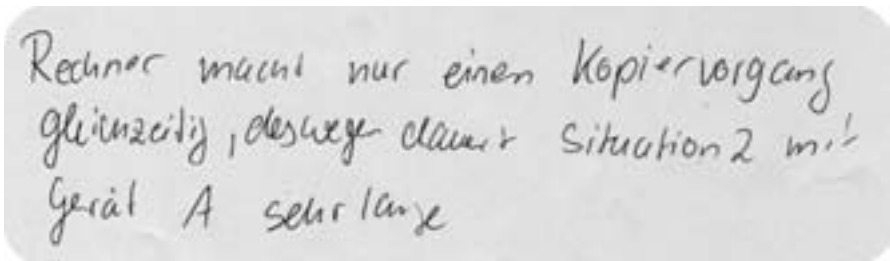 Rechner macht nur einen Kopiervorgang
gleichzeitig, deswegen dauert Situation 2 mit
Gerät A sehr lange